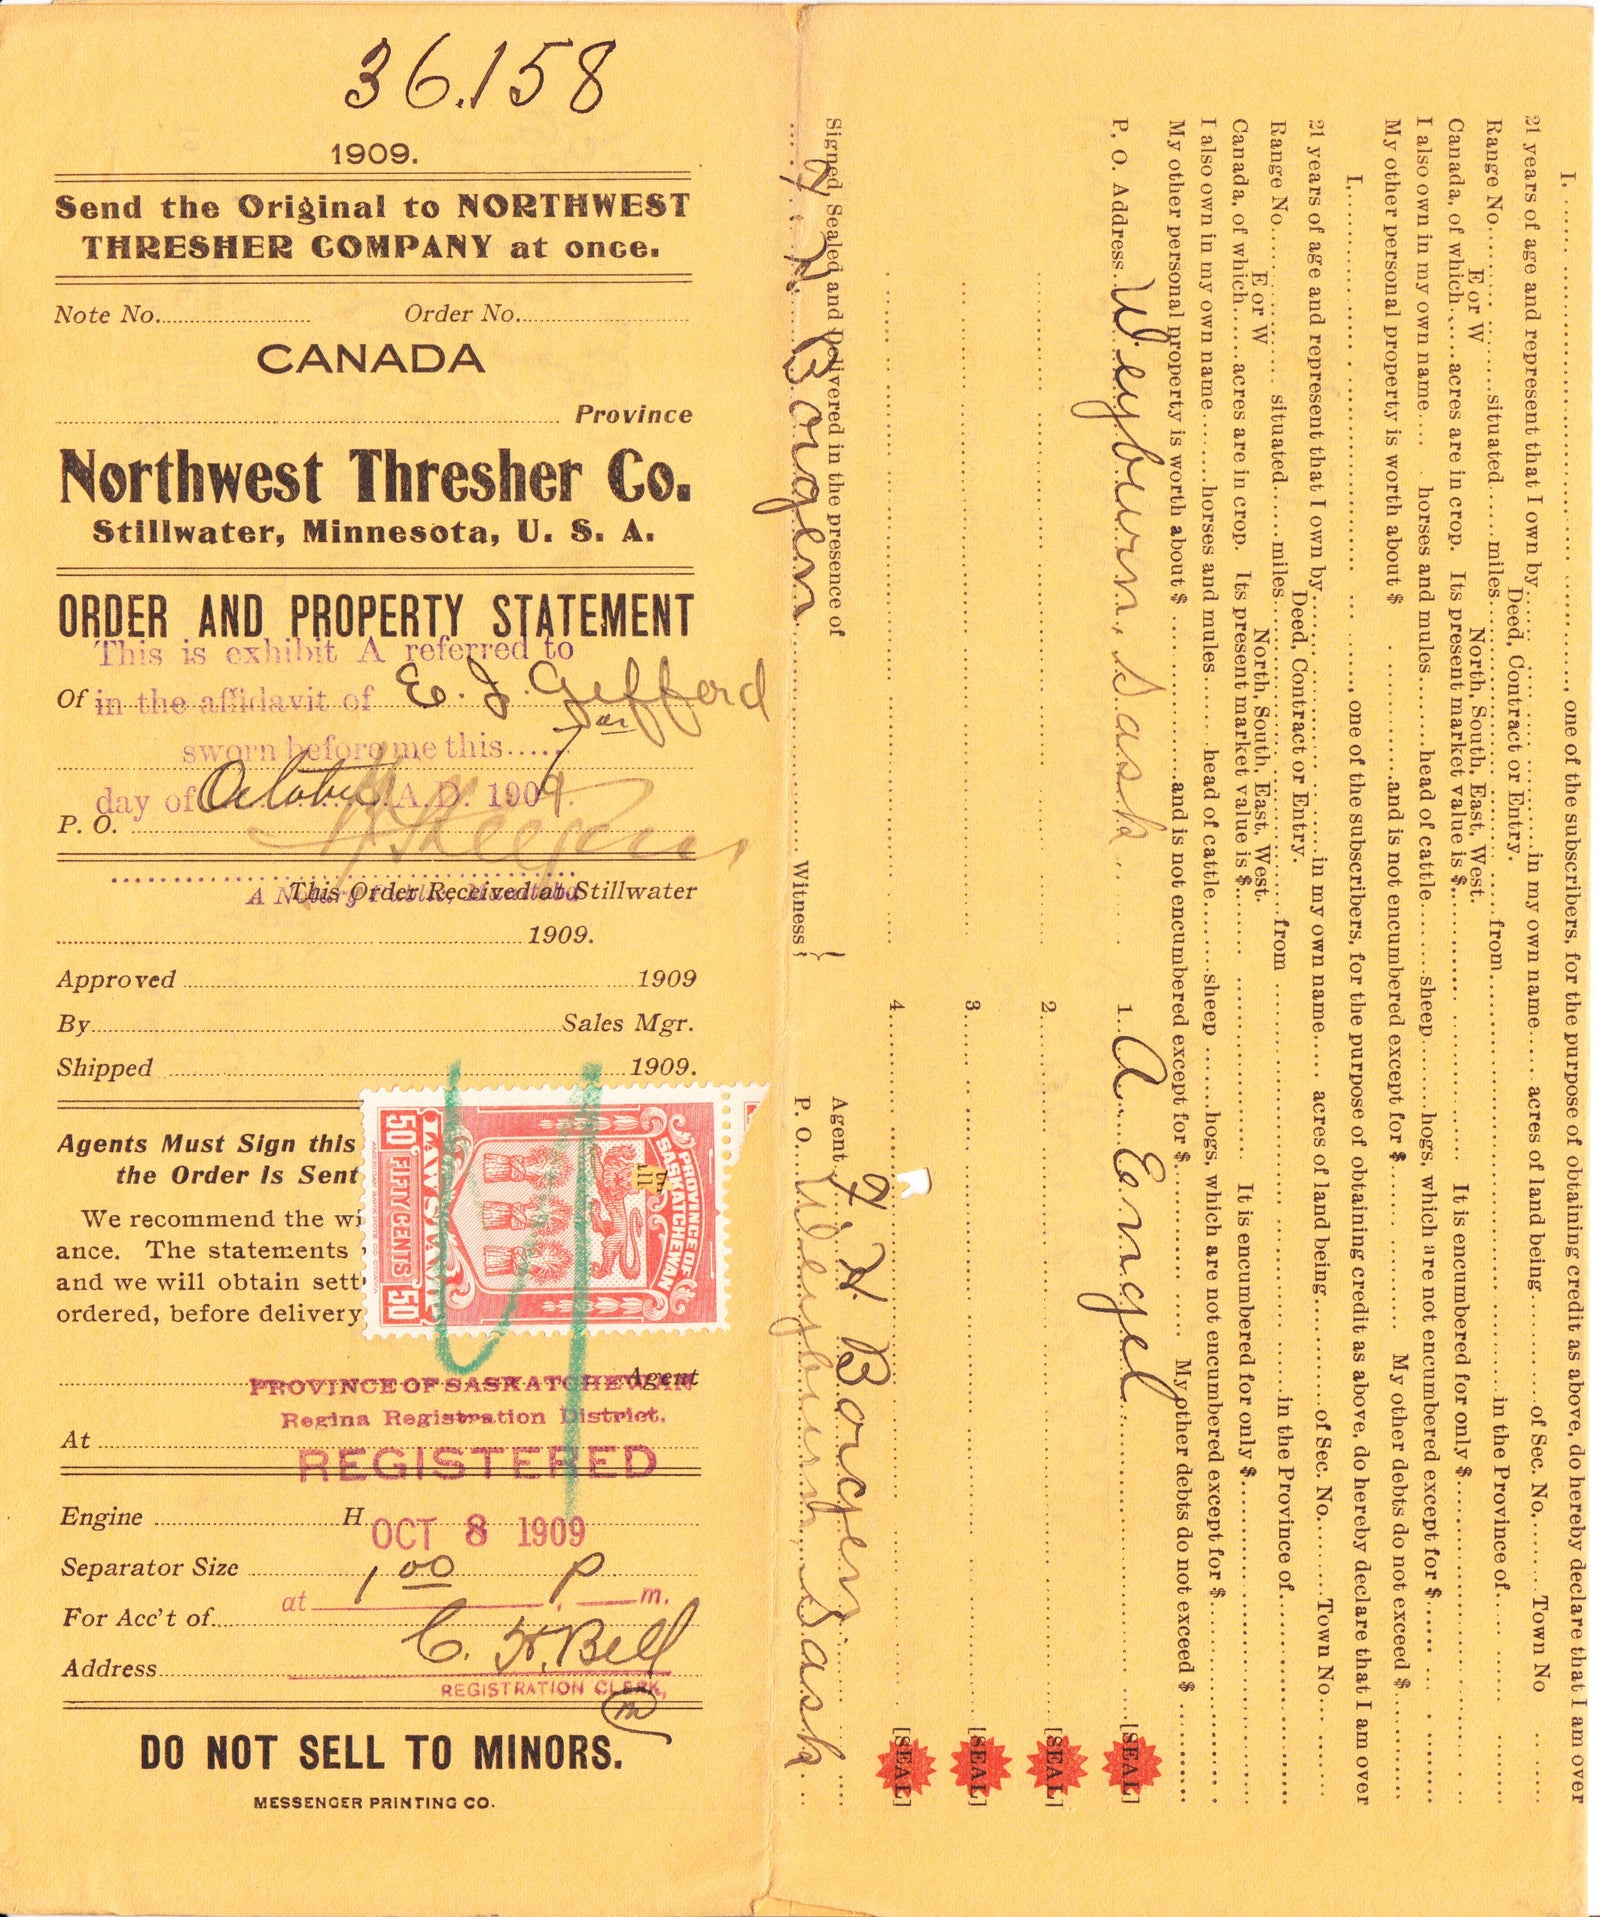 36.158
1909.
Send the Original to NORTHWEST
THRESHER COMPANY at once.
Note No. Order No.
CANADA
Province
Northwest Thresher Co.
Stillwater, Minnesota, U. S. A.
ORDER AND PROPERTY STATEMENT
This is exhibit A referred to
Of in the affidavit of E. J. Gefford
sworn before me this 7
day of October A.D. 1909.
P. O.
A Notary Public,
This Order Received at Stillwater
1909.
Approved 1909
By Sales Mgr.
Shipped 1909.
Agents Must Sign this
the Order Is Sent
We recommend the wi
ance. The statements
and we will obtain sett
ordered, before delivery
PROVINCE OF
SASKATCHEWAN
LAW STAMP
50 FIFTY CENTS 50
Agent
PROVINCE OF SASKATCHEWAN
Regina Registration District.
At
REGISTERED
Engine H
OCT 8 1909
Separator Size
at 1 00 P m.
For Acc't of
C. H. Bell
Address
REGISTRATION CLERK,
DO NOT SELL TO MINORS.
MESSENGER PRINTING CO.
I, one of the subscribers, for the purpose of obtaining credit as above, do hereby declare that I am over
21 years of age and represent that I own by Deed, Contract or Entry. in my own name acres of land being of Sec. No. Town No
Range No. E or W situated miles North, South, East, West. from in the Province of
Canada, of which acres are in crop. Its present market value is $ It is encumbered for only $
I also own in my own name horses and mules head of cattle sheep hogs, which are not encumbered except for $
My other personal property is worth about $ and is not encumbered except for $ My other debts do not exceed $
I, one of the subscribers, for the purpose of obtaining credit as above, do hereby declare that I am over
21 years of age and represent that I own by Deed, Contract or Entry. in my own name acres of land being of Sec. No. Town No
Range No. E or W situated miles North, South, East, West. from in the Province of
Canada, of which acres are in crop. Its present market value is $ It is encumbered for only $
I also own in my own name horses and mules head of cattle sheep hogs, which are not encumbered except for $
My other personal property is worth about $ and is not encumbered except for $ My other debts do not exceed $
P. O. Address Weyburn, Sask 1 A Engel [SEAL]
2 [SEAL]
3 [SEAL]
4 [SEAL]
Signed, Sealed and Delivered in the presence of Agent F H Borgen
F. H. Borgen Witness P. O. Weyburn, Sask